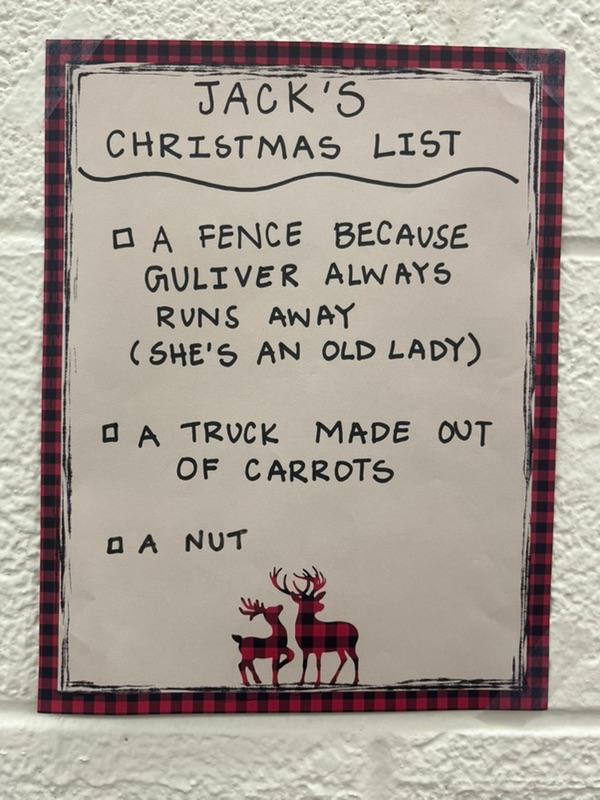 JACK'S
CHRISTMAS LIST
A FENCE BECAUSE
GULIVER ALWAYS
RUNS AWAY
(SHE'S AN OLD LADY)
A TRUCK MADE OUT
OF CARROTS
A NUT